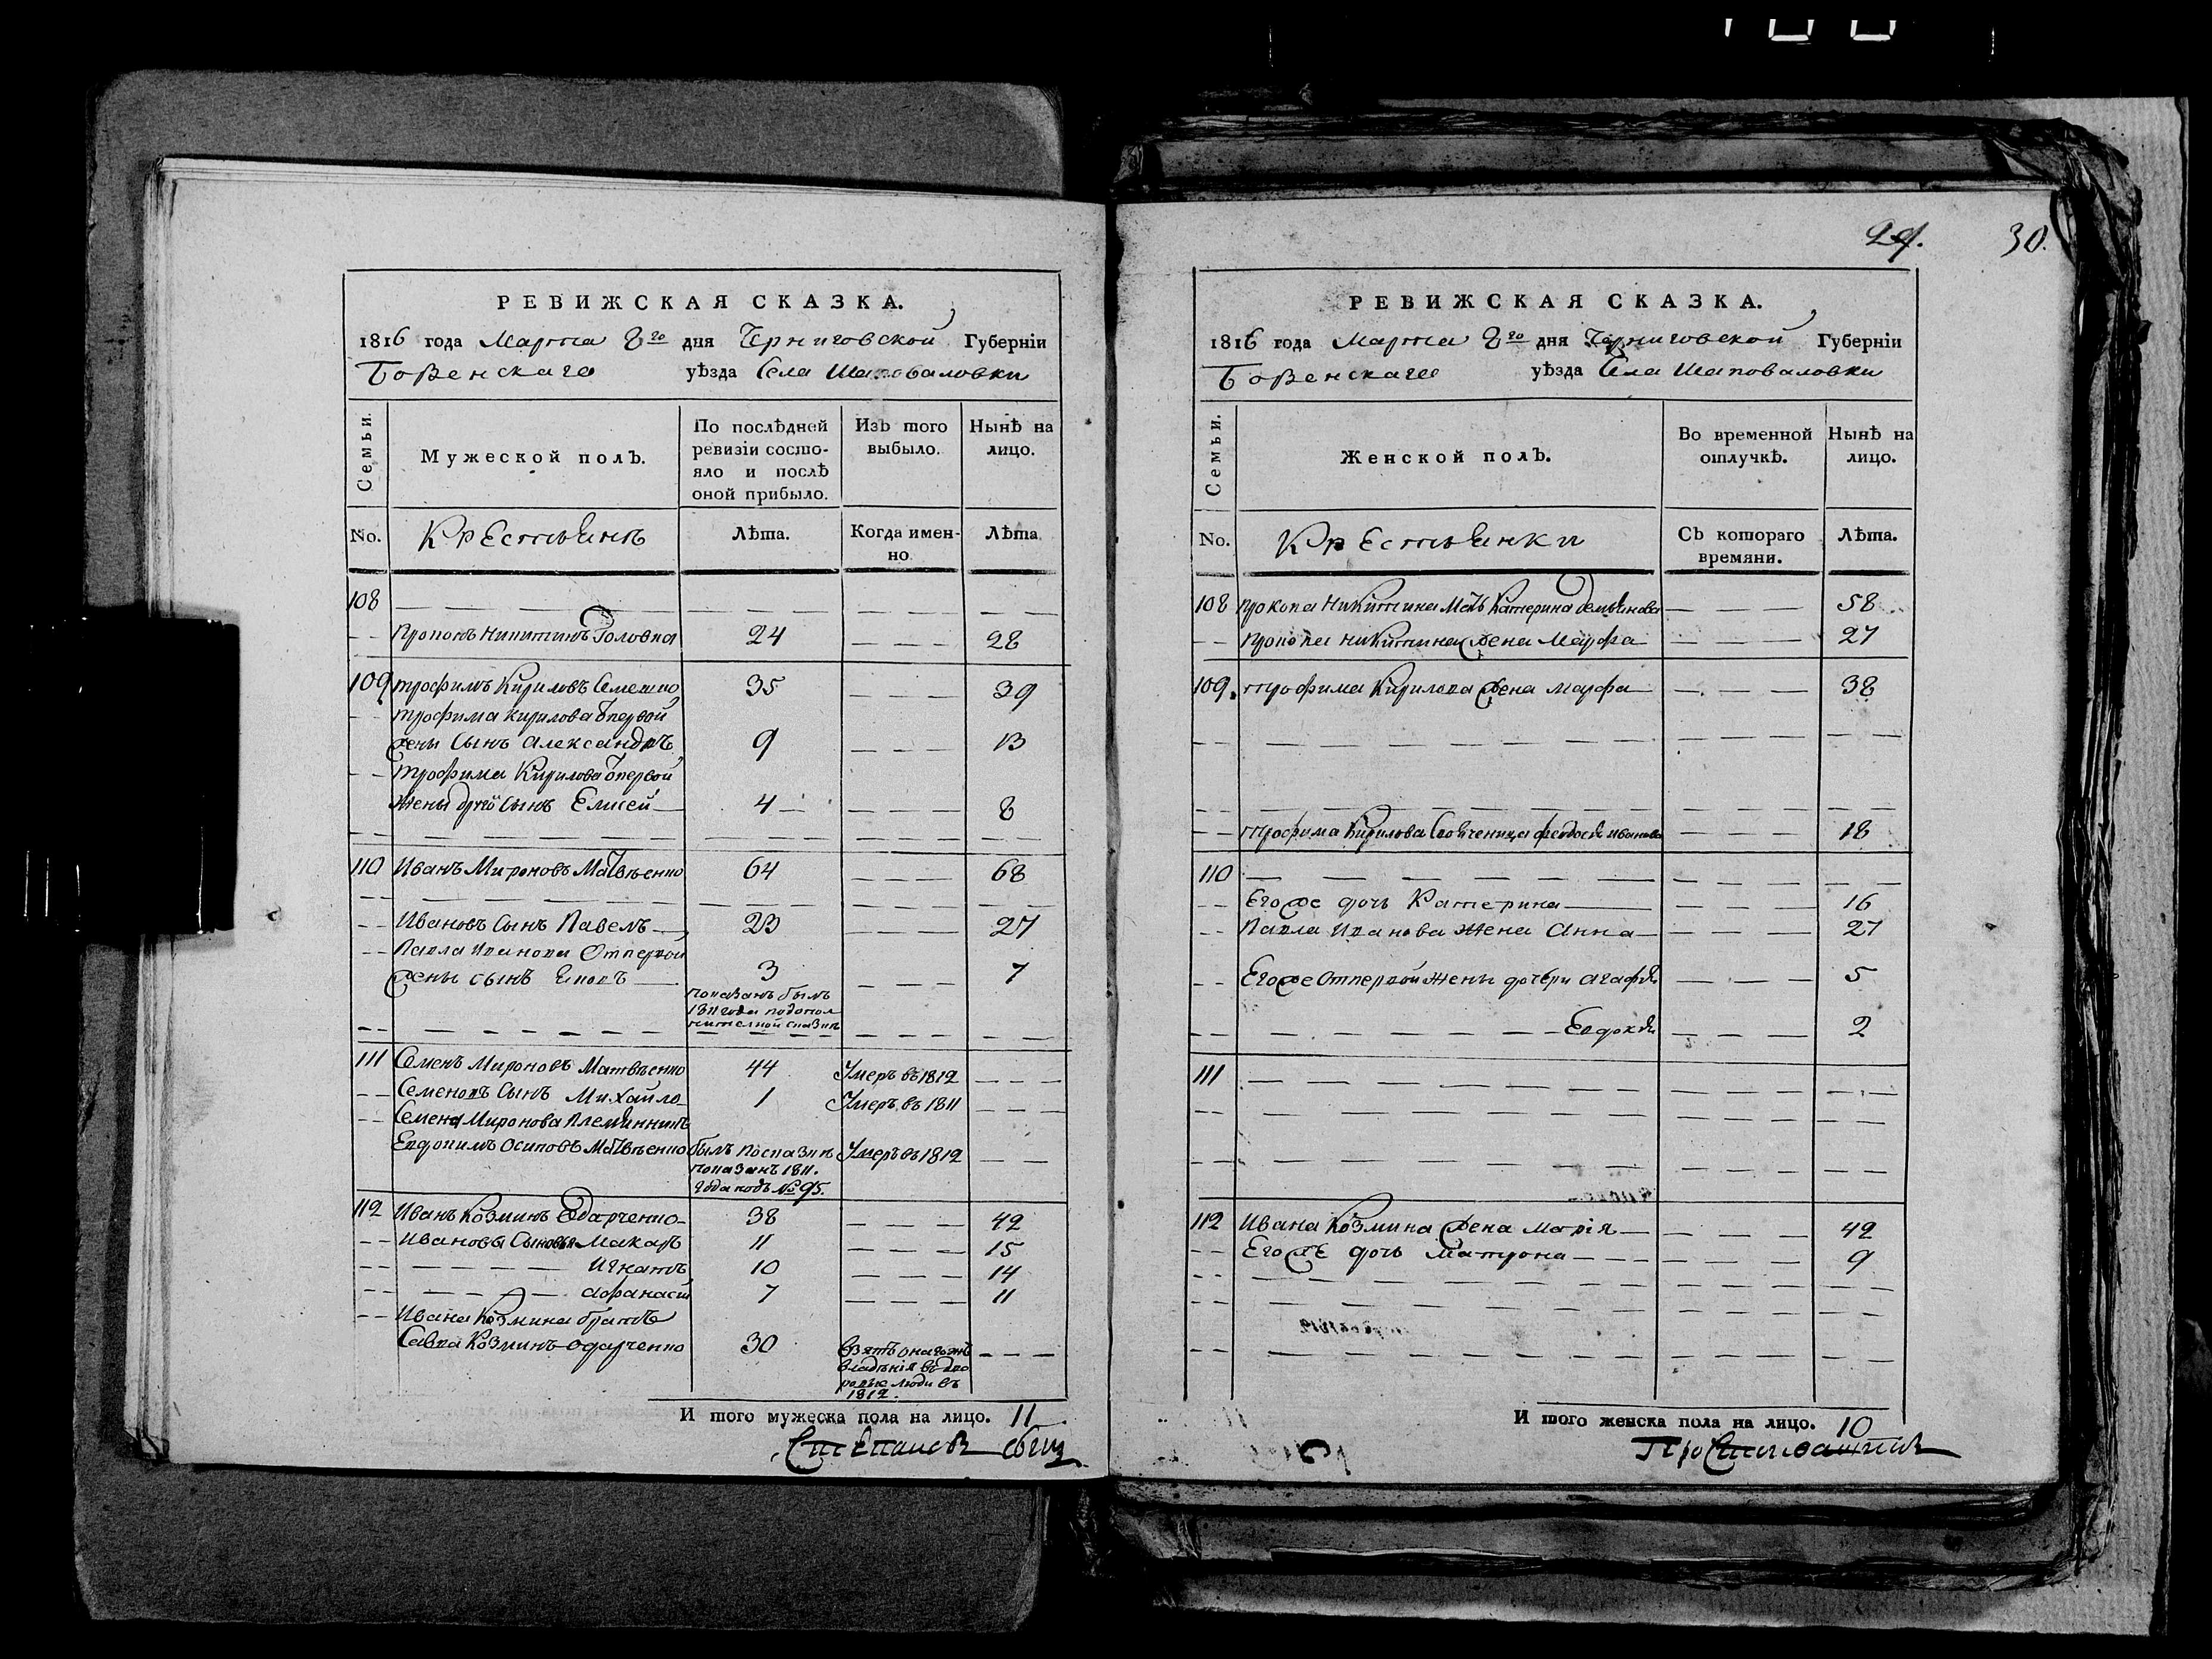 РЕВИЖСКАЯ СКАЗКА.
1816 года Марта 8го дня Черниговской Губерніи
Борзенскаго уѣзда Села Шаповаловки
Семьи.
Мужеской полъ.
По послѣдней ревизіи состояло и послѣ оной прибыло.
Изъ того выбыло.
Нынѣ на лицо.
No. Крестьянъ Лѣта. Когда именно Лѣта
108
Прокопъ Никитинъ Головка 24 28
109 Трофимъ Кириловъ 35 39
Трофима Кирилова отпервой
жены Сынъ Александръ 9 13
Трофима Кирилова отпервой
жены другой Сынъ Елисей 4 8
110 Иванъ Мироновъ Матвѣенко 64 68
Ивановъ Сынъ Павелъ 23 27
Павла Иванова Отпервой
жены сынъ 3 7
показанъ былъ
1811 года подопол
нителной сказкѣ
111 Семенъ Мироновъ Матвѣенко 44 Умеръ въ 1812
Семеновъ Сынъ Михайло 1 Умеръ въ 1811
Семена Миронова Племянникъ
Евдокимъ Осиповъ Матвѣенко былъ посказкѣ Умеръ въ 1812
показанъ 1811.
года подъ № 95.
112 Иванъ Козминъ Одарченко 38 42
Ивановы Сыновья Макаръ 11 15
Игнатъ 10 14
Афанасій 7 11
Ивана Козмина братъ
Савва Козминъ Одарченко 30 взятъ онагожъ
владѣнія въ дво
ровые люди въ
1812.
И того мужеска пола на лицо. 11
29. 30.
РЕВИЖСКАЯ СКАЗКА.
1816 года Марта 8го дня Черниговской Губерніи
Борзенскаго уѣзда Села Шаповаловки
Семьи.
Женской полъ.
Во временной отлучкѣ.
Нынѣ на лицо.
No. Крестьянки Съ котораго времяни. Лѣта.
108 Прокопа Никитина Мать Катерина Демьянова 58
Прокопа Никитина жена Марфа 27
109. Трофима Кирилова жена Марфа 38
Трофима Кирилова Феодосія Иванова 18
110
Егоже дочь Катерина 16
Павла Иванова жена Анна 27
Егоже Отпервой жены дочери Агафія 5
Евдокія 2
111
112 Ивана Козмина жена Марія 42
Егоже дочь Матрона 9
И того женска пола на лицо. 10